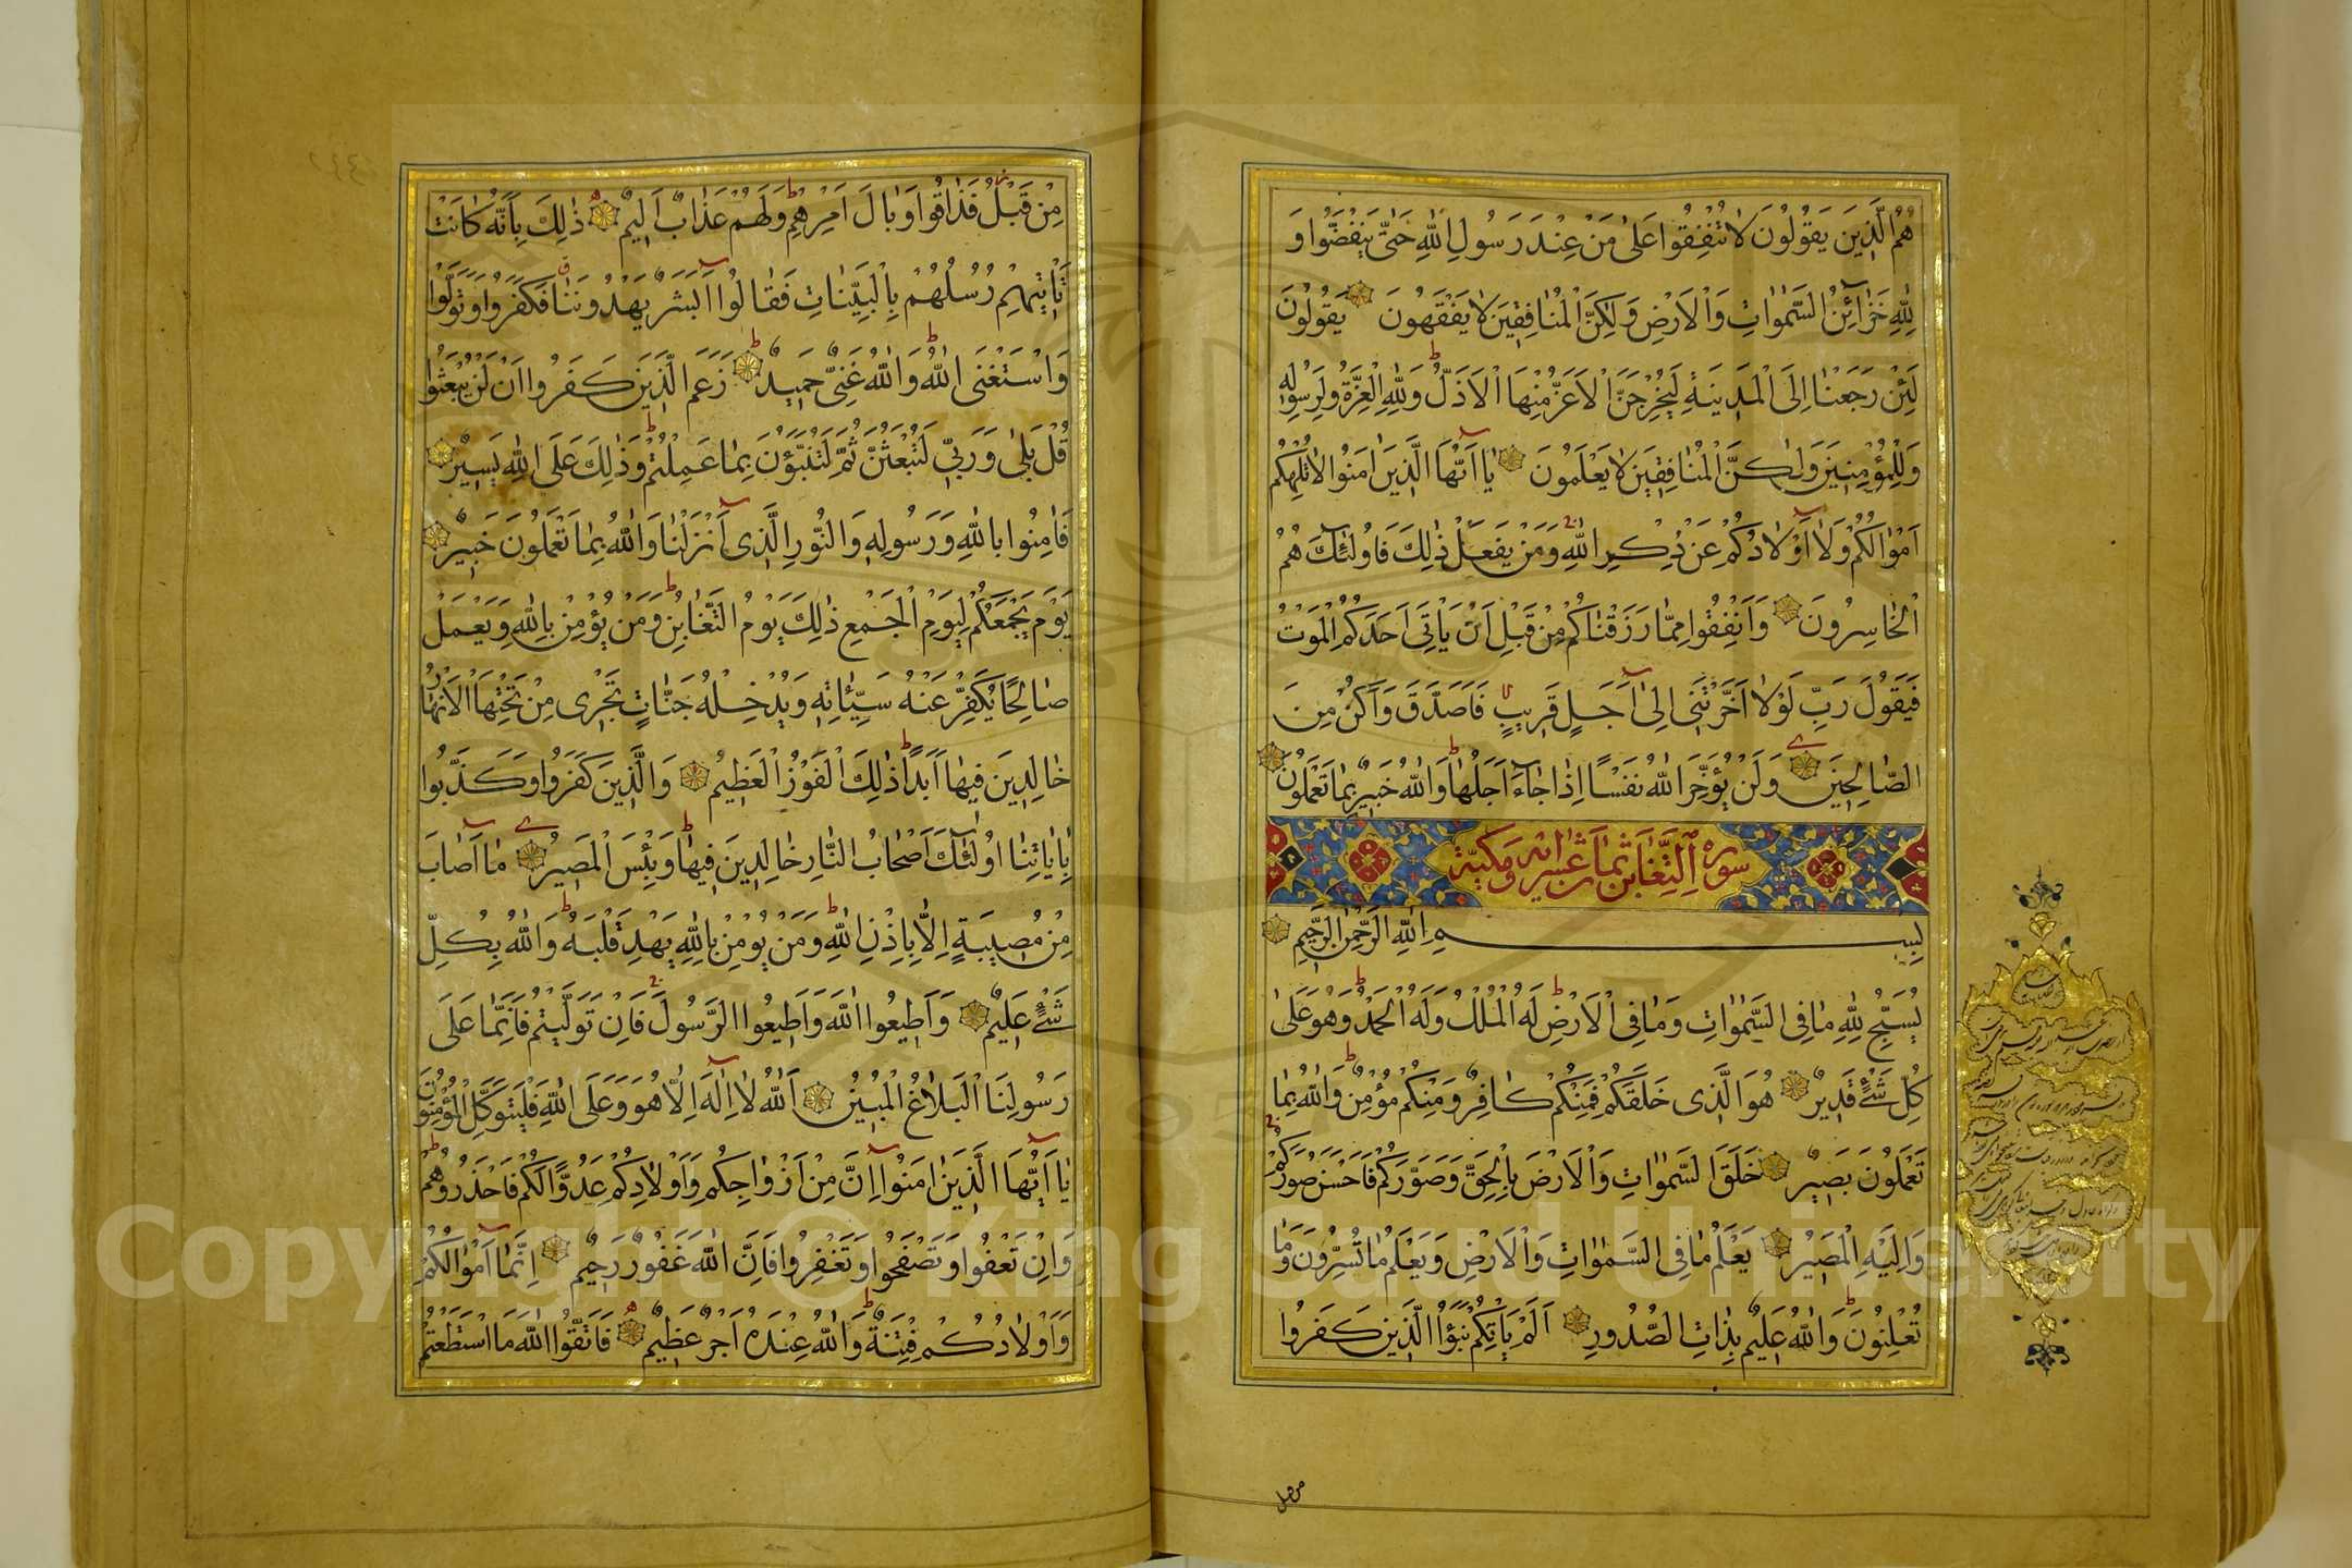 هُمُ الَّذِينَ يَقُولُونَ لَا تُنْفِقُوا عَلَىٰ مَنْ عِنْدَ رَسُولِ اللّٰهِ حَتّٰى يَنْفَضُّوا وَ
لِلّٰهِ خَزَآئِنُ السَّمٰوَاتِ وَالْاَرْضِ وَلٰكِنَّ الْمُنَافِقِينَ لَا يَفْقَهُونَ يَقُولُونَ
لَئِنْ رَجَعْنَا اِلَى الْمَدِينَةِ لَيُخْرِجَنَّ الْاَعَزُّ مِنْهَا الْاَذَلَّ وَلِلّٰهِ الْعِزَّةُ وَلِرَسُولِهِ
وَلِلْمُؤْمِنِينَ وَلٰكِنَّ الْمُنَافِقِينَ لَا يَعْلَمُونَ يَا اَيُّهَا الَّذِينَ اٰمَنُوا لَا تُلْهِكُمْ
اَمْوَالُكُمْ وَلَا اَوْلَادُكُمْ عَنْ ذِكْرِ اللّٰهِ وَمَنْ يَفْعَلْ ذٰلِكَ فَاُولٰئِكَ هُمُ
الْخَاسِرُونَ وَاَنْفِقُوا مِمَّا رَزَقْنَاكُمْ مِنْ قَبْلِ اَنْ يَاْتِىَ اَحَدَكُمُ الْمَوْتُ
فَيَقُولَ رَبِّ لَوْلَا اَخَّرْتَنِى اِلٰى اَجَلٍ قَرِيبٍ فَاَصَّدَّقَ وَاَكُنْ مِنَ
الصَّالِحِينَ وَلَنْ يُؤَخِّرَ اللّٰهُ نَفْسًا اِذَا جَآءَ اَجَلُهَا وَاللّٰهُ خَبِيرٌ بِمَا تَعْمَلُونَ
سورة التغابن ثمان عشر اية ومكية
بِسْمِ اللّٰهِ الرَّحْمٰنِ الرَّحِيمِ
يُسَبِّحُ لِلّٰهِ مَا فِى السَّمٰوَاتِ وَمَا فِى الْاَرْضِ لَهُ الْمُلْكُ وَلَهُ الْحَمْدُ وَهُوَ عَلٰى
كُلِّ شَىْءٍ قَدِيرٌ هُوَ الَّذِى خَلَقَكُمْ فَمِنْكُمْ كَافِرٌ وَمِنْكُمْ مُؤْمِنٌ وَاللّٰهُ بِمَا
تَعْمَلُونَ بَصِيرٌ خَلَقَ السَّمٰوَاتِ وَالْاَرْضَ بِالْحَقِّ وَصَوَّرَكُمْ فَاَحْسَنَ صُوَرَكُمْ
وَاِلَيْهِ الْمَصِيرُ يَعْلَمُ مَا فِى السَّمٰوَاتِ وَالْاَرْضِ وَيَعْلَمُ مَا تُسِرُّونَ وَمَا
تُعْلِنُونَ وَاللّٰهُ عَلِيمٌ بِذَاتِ الصُّدُورِ اَلَمْ يَاْتِكُمْ نَبَؤُا الَّذِينَ كَفَرُوا
مِنْ قَبْلُ فَذَاقُوا وَبَالَ اَمْرِهِمْ وَلَهُمْ عَذَابٌ اَلِيمٌ ذٰلِكَ بِاَنَّهُ كَانَتْ
تَاْتِيهِمْ رُسُلُهُمْ بِالْبَيِّنَاتِ فَقَالُوا اَبَشَرٌ يَهْدُونَنَا فَكَفَرُوا وَتَوَلَّوْا
وَاسْتَغْنَى اللّٰهُ وَاللّٰهُ غَنِىٌّ حَمِيدٌ زَعَمَ الَّذِينَ كَفَرُوا اَنْ لَنْ يُبْعَثُوا
قُلْ بَلٰى وَرَبِّى لَتُبْعَثُنَّ ثُمَّ لَتُنَبَّؤُنَّ بِمَا عَمِلْتُمْ وَذٰلِكَ عَلَى اللّٰهِ يَسِيرٌ
فَاٰمِنُوا بِاللّٰهِ وَرَسُولِهِ وَالنُّورِ الَّذِى اَنْزَلْنَا وَاللّٰهُ بِمَا تَعْمَلُونَ خَبِيرٌ
يَوْمَ يَجْمَعُكُمْ لِيَوْمِ الْجَمْعِ ذٰلِكَ يَوْمُ التَّغَابُنِ وَمَنْ يُؤْمِنْ بِاللّٰهِ وَيَعْمَلْ
صَالِحًا يُكَفِّرْ عَنْهُ سَيِّئَاتِهِ وَيُدْخِلْهُ جَنَّاتٍ تَجْرِى مِنْ تَحْتِهَا الْاَنْهَارُ
خَالِدِينَ فِيهَا اَبَدًا ذٰلِكَ الْفَوْزُ الْعَظِيمُ وَالَّذِينَ كَفَرُوا وَكَذَّبُوا
بِاٰيَاتِنَا اُولٰئِكَ اَصْحَابُ النَّارِ خَالِدِينَ فِيهَا وَبِئْسَ الْمَصِيرُ مَا اَصَابَ
مِنْ مُصِيبَةٍ اِلَّا بِاِذْنِ اللّٰهِ وَمَنْ يُؤْمِنْ بِاللّٰهِ يَهْدِ قَلْبَهُ وَاللّٰهُ بِكُلِّ
شَىْءٍ عَلِيمٌ وَاَطِيعُوا اللّٰهَ وَاَطِيعُوا الرَّسُولَ فَاِنْ تَوَلَّيْتُمْ فَاِنَّمَا عَلٰى
رَسُولِنَا الْبَلَاغُ الْمُبِينُ اَللّٰهُ لَا اِلٰهَ اِلَّا هُوَ وَعَلَى اللّٰهِ فَلْيَتَوَكَّلِ الْمُؤْمِنُونَ
يَا اَيُّهَا الَّذِينَ اٰمَنُوا اِنَّ مِنْ اَزْوَاجِكُمْ وَاَوْلَادِكُمْ عَدُوًّا لَكُمْ فَاحْذَرُوهُمْ
وَاِنْ تَعْفُوا وَتَصْفَحُوا وَتَغْفِرُوا فَاِنَّ اللّٰهَ غَفُورٌ رَحِيمٌ اِنَّمَا اَمْوَالُكُمْ
وَاَوْلَادُكُمْ فِتْنَةٌ وَاللّٰهُ عِنْدَهُ اَجْرٌ عَظِيمٌ فَاتَّقُوا اللّٰهَ مَا اسْتَطَعْتُمْ
Copyright © King Saud University
1957